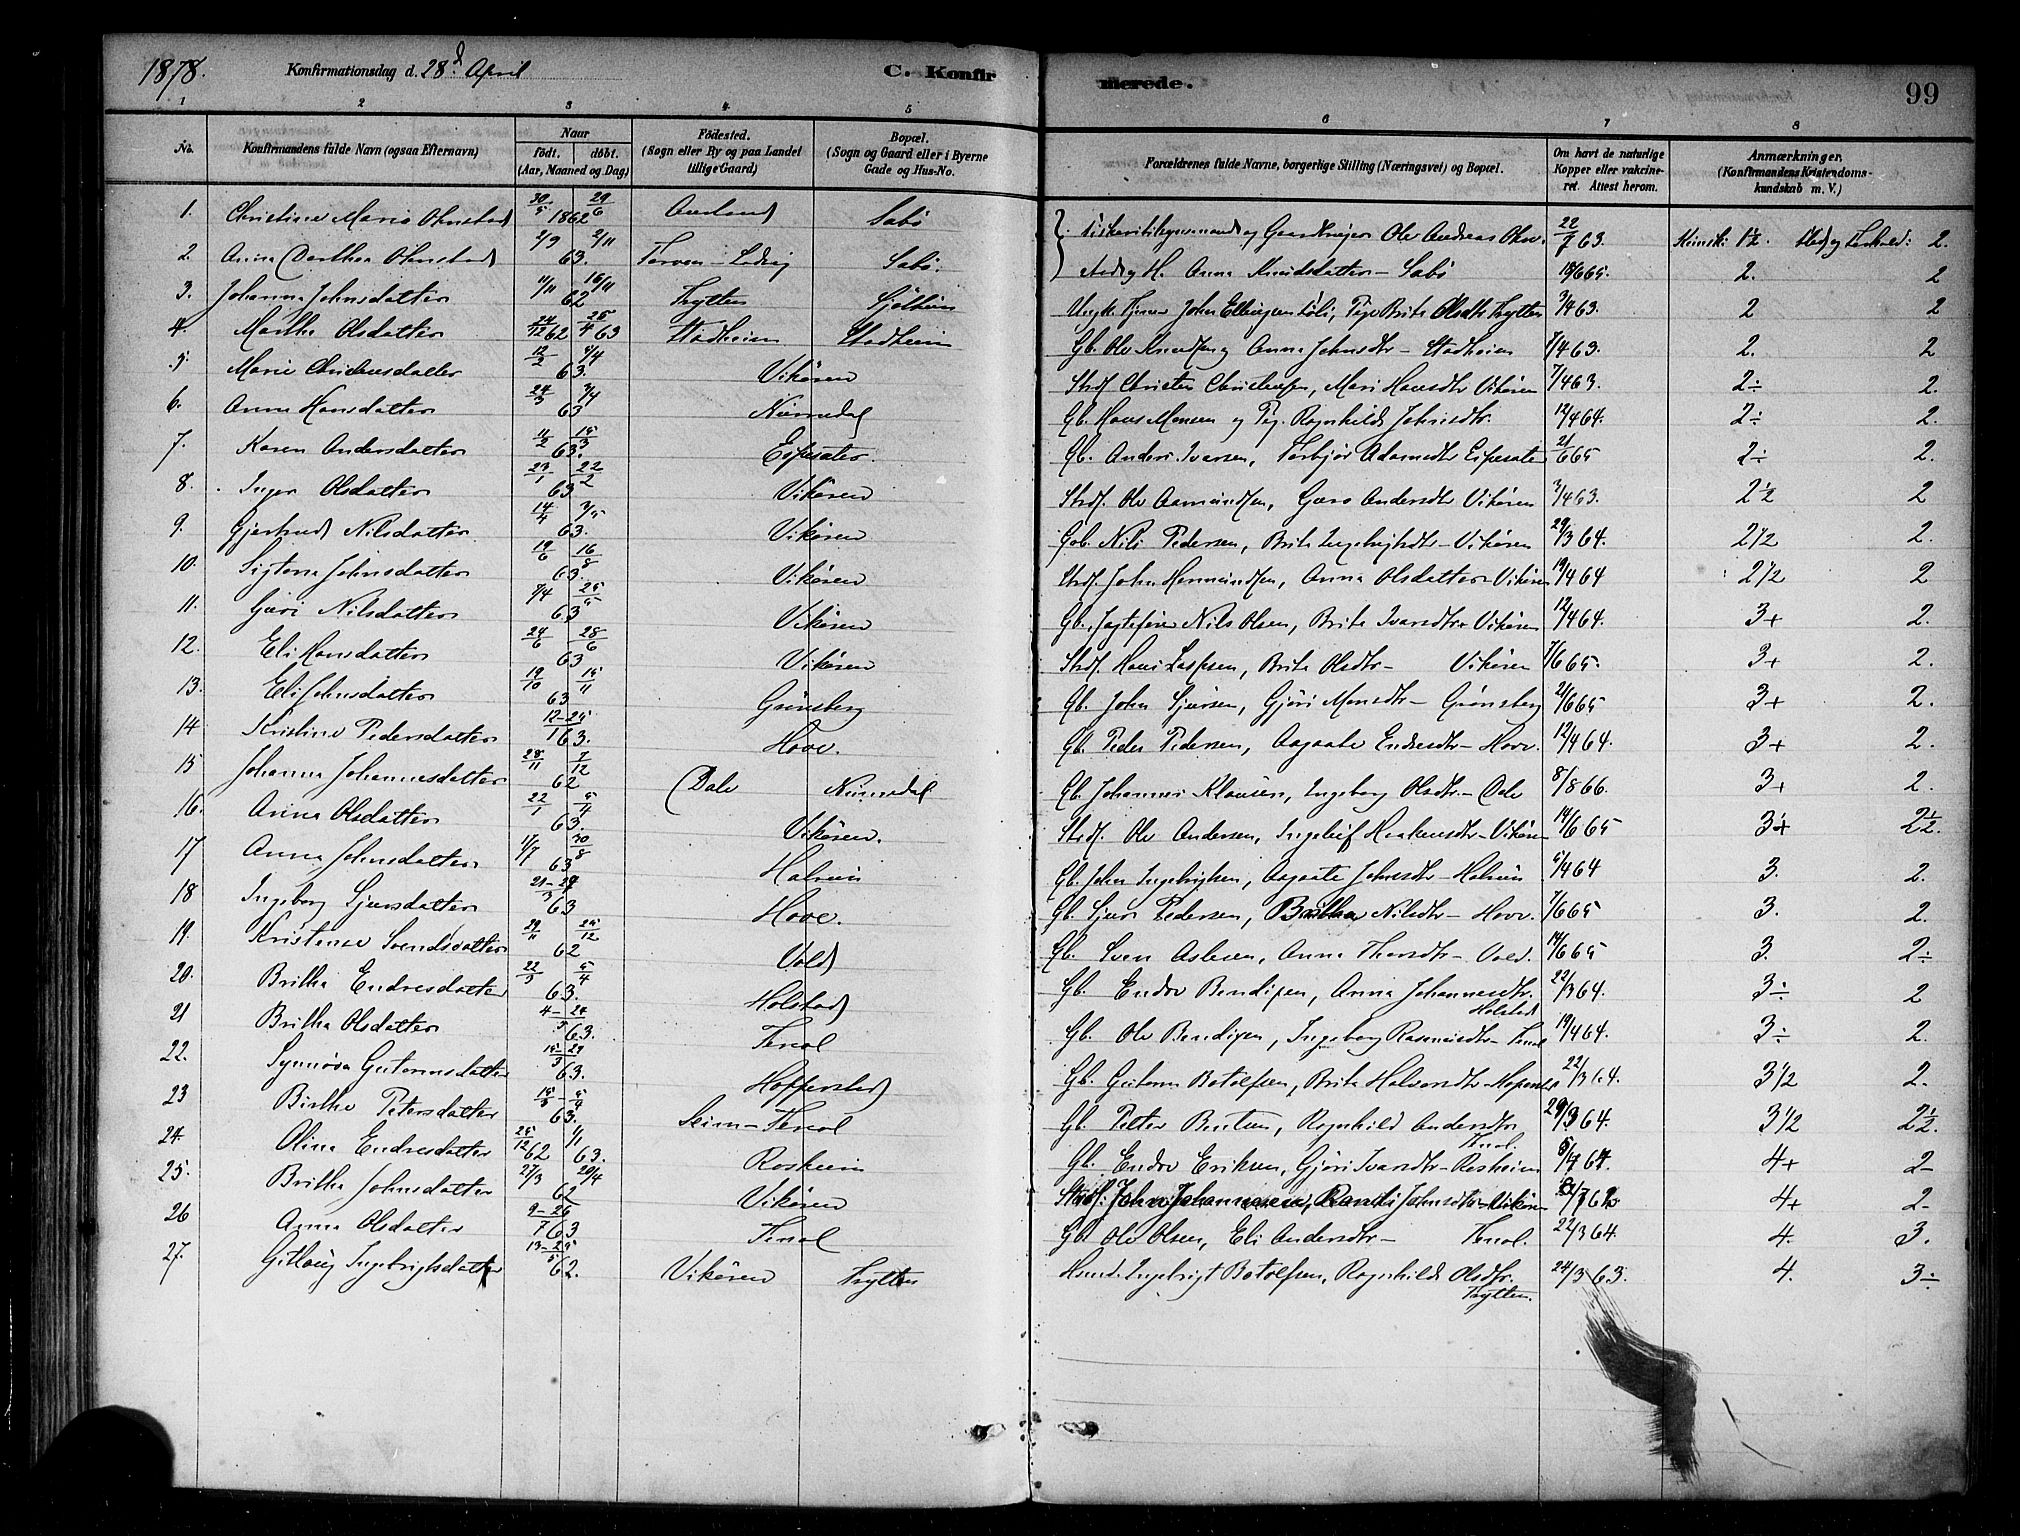 1878. Konfirmationsdag d. 28d April C. Konfirmerede. 99
1 2 3 4 5 6 7 8
No. Konfirmandens fulde Navn (ogsaa Efternavn) Naar født. døbt. (Aar, Maaned og Dag) Fødested. (Sogn eller By og paa Landet tillige Gaard) Bopæl. (Sogn og Gaard eller i Byerne Gade og Hus-No. Forældrenes fulde Navne, borgerlige Stilling (Næringsvei) og Bopæl. Om havt de naturlige Kopper eller vakcineret. Attest herom. Anmærkninger. (Konfirmandens Kristendomskundskab m. V.)
1. Christine Marie Ohnstad 30/5 29/6 1862 Aurland Sabø og Gaardbruger Ole Andreas 22/7 63. 1½. 2.
2. Anna Dorthea Ohnstad 2/9 2/11 63. Sabø. Anna Knudsdatter - Sabø 18/6 65. 2. 2
3. Johanna Johnsdatter 11/11 16/11 62 Trytten John Ellingsen Pige Brita Olsdtr Trytten 3/4 63. 2 2
4. Martha Olsdatter 24/12 62 25/4 63 Stadheim Stadheim Gb. Ole Knudsen og Anna Johnsdtr - Stadheim 7/4 63. 2. 2
5. Marie Christensdatter 12/2 6/4 63. Vikøren Strdf. Christen Christensen, Mari Hansdtr Vikøren 7/4 63. 2÷ 2.
6. Anna Hansdatter 24/3 3/4 63 Numedal Gb. Hans Monsen og Pig. Ragnhilde Johnsdtr. 12/4 64. 2÷ 2.
7. Karen Andersdatter 11/2 15/3 63. Eipesater. Gb. Anders Ivarsen, Torbjør Adamsdtr Eipesater 21/6 65 2÷ 2.
8. Inger Olsdatter 23/1 22/2 63 Vikøren Strdf. Ole Aamundsen, Andersdtr Vikøren 3/4 63. 2½ 2
9. Gjertrud Nilsdatter 14/4 3/5 63. Vikøren Gb. Nils Pedersen, Brita Ingebrigtsdtr - Vikøren 29/3 64. 2½ 2.
10. Sigtona Johnsdatter 19/6 16/8 63. Vikøren Strdf. John Hermundsen, Anna Olsdatter - Vikøren 19/4 64 2½ 2
11. Guri Nilsdatter 7/4 25/5 63 Vikøren Gb. Nils Olsen, Brita Ivarsdtr - Vikøren 12/4 64. 3+ 2.
12. Eli Hansdatter 24/6 28/6 63 Vikøren Strdf. Hans Brita Olsdtr - Vikøren 7/6 65. 3+ 2.
13. Eli Johnsdatter 19/10 15/11 63 Grønsberg Gb. John Sjursen, Gjøri Monsdtr - Grønsberg 21/6 65 3+ 2.
14 Kristine Pedersdatter 12-25/1 63. Hove. Gb. Peder Pedersen, Aagaate Endresdtr - Hove. 12/4 64. 3+ 2.
15 Johanna Johannesdatter 28/11 7/12 62 Dale Numedal Gb. Johannes Klausen, Ingeborg Olsdtr. - Dale 8/8 66. 3+ 2.
16. Anna Olsdatter 22/1 5/4 63. Vikøren. Strdf. Ole Andersen, Ingeleif Haakensdtr - Vikøren 14/6 65 3+ 2½.
17 Anna Johnsdatter 17/7 30/8 63 Halsein Gb. John Ingebrigtsen, Aagaate Johnsdtr - Halsein 5/4 64 3. 2.
18 Ingeborg Sjursdatter 21-29/3 63 Hove. Gb. Sjur Pedersen, Britha Nilsdtr - Hove. 7/6 65 3. 2.
19. Kristense Svendsdatter 29/11 25/12 62 Vold Gb. Sven Aslesen, Anna Thorsdtr - Vold. 14/6 65 3. 2÷
20. Britha Endresdatter 22/3 5/4 63. Holstad Gb. Endre Bendixen, Anna Johannesdtr. Holstad 22/3 64. 3÷ 2
21 Britha Olsdatter 4-24/5 63. Tenol Gb. Ole Bendixen, Ingeborg Rasmusdtr - Tenol 19/4 64. 3÷ 2.
22. Synnøva Guttormsdatter 15-29/3 63. Hopperstad Gb. Guttorm Botolfsen, Brita Halvorsdtr - Hoperst. 22/3 64. 3½ 2.
23 Birthe Petersdatter 15/3 - 5/4 63. Seim - Tenol Gb. Petter Bentsen, Ragnhild Andersdtr Tenol. 29/3 64. 3½ 2½.
24. Olina Endresdatter 25/12 62 1/11 63. Rosheim Gb. Endre Eriksen, Gjøri Ivarsdtr - Rosheim 5/7 64. 4+ 2-
25. Britha Johnsdatter 27/3 20/4 62 Vikøren Strdf. John Johannesen, Randi Johnsdtr - Vikøren 4+ 2-
26 Anna Olsdatter 9-26/7 63 Tenol Gb. Ole Olsen, Eli Andersdtr - Tenol. 22/3 64. 4. 3.
27. Gitlaug Ingebrigtsdatter 13-25/5 62. Vikøren Trytten Husmd. Ingebrigt Botolfsen, Ragnhilde Olsdtr. Trytten. 24/3 63. 4. 3÷